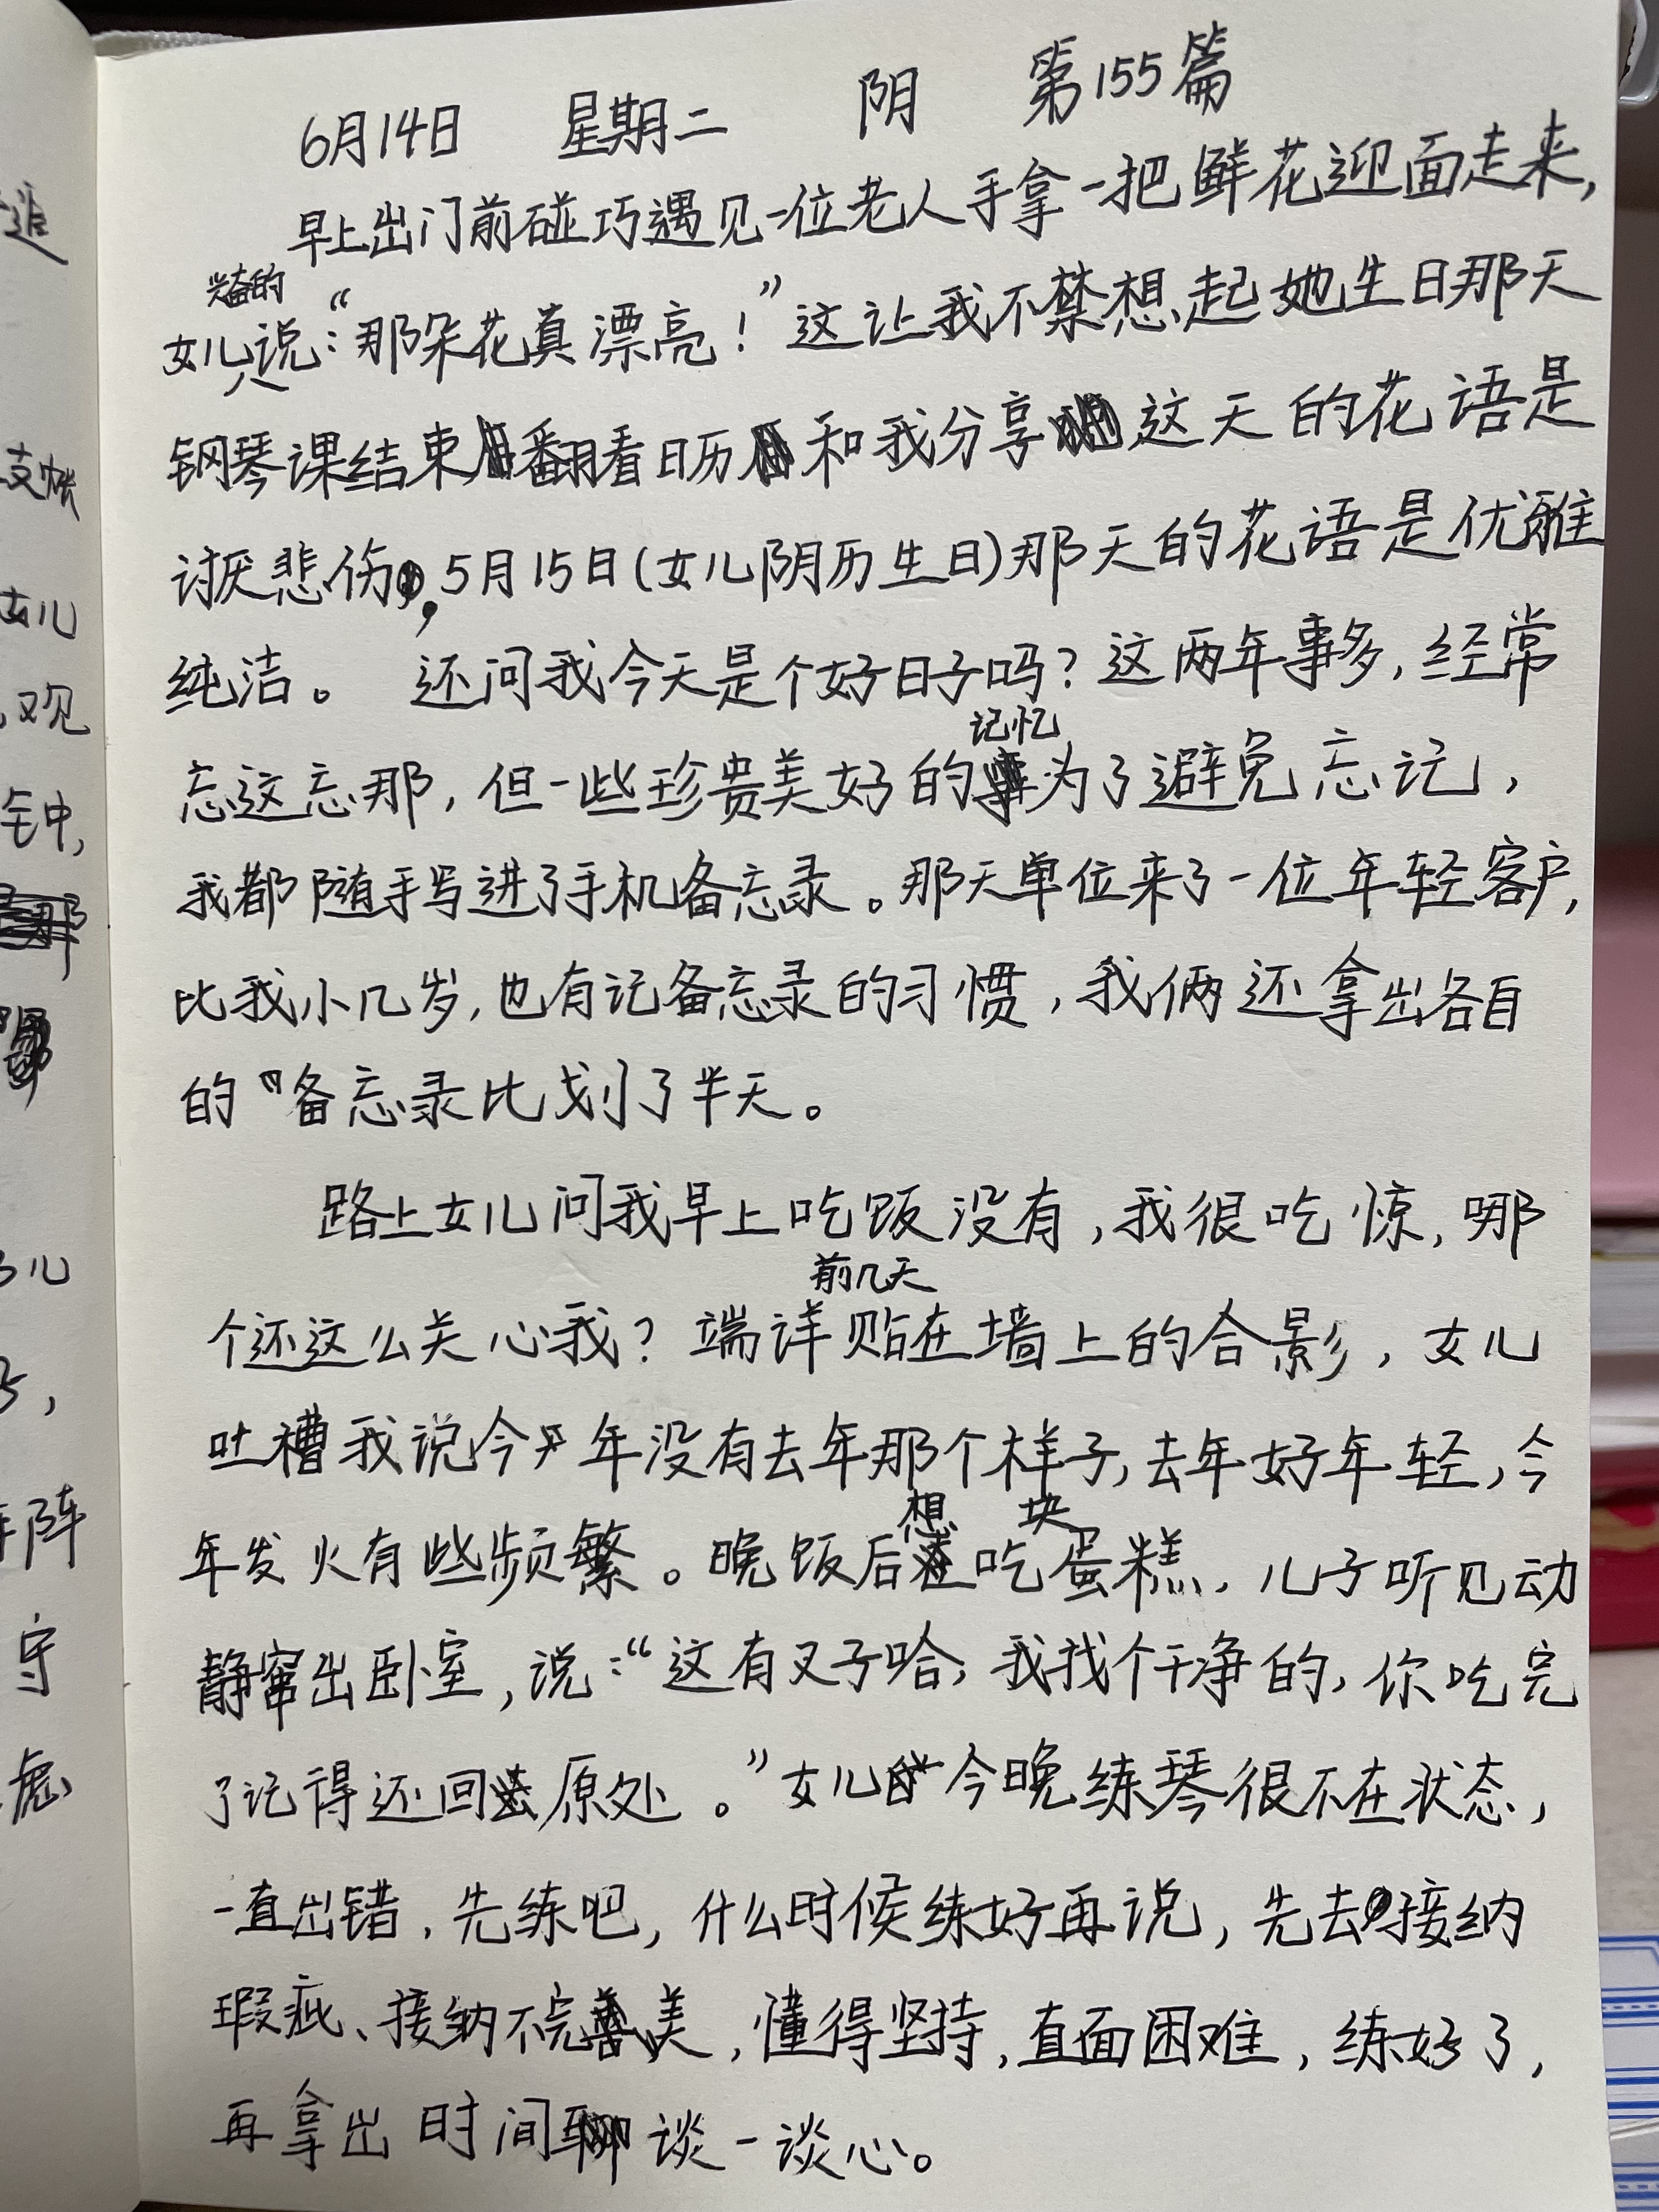 6月14日 星期二 阴 第155篇
早上出门前碰巧遇见一位老人手拿一把鲜花迎面走来,
女儿兴奋的说:“那朵花真漂亮!”这让我不禁想起她生日那天
钢琴课结束翻看日历和我分享这天的花语是
讨厌悲伤,5月15日(女儿阴历生日)那天的花语是优雅
纯洁。 还问我今天是个好日子吗?这两年事多,经常
忘这忘那,但一些珍贵美好的记忆为了避免忘记,
我都随手写进了手机备忘录。那天单位来了一位年轻客户,
比我小几岁,也有记备忘录的习惯,我俩还拿出各自
的“备忘录比划了半天。
路上女儿问我早上吃饭没有,我很吃惊,哪
个还这么关心我?端详前几天贴在墙上的合影,女儿
吐槽我说今年没有去年那个样子,去年好年轻,今
年发火有些频繁。晚饭后想吃块蛋糕,儿子听见动
静窜出卧室,说:“这有叉子哈,我找个干净的,你吃完
了记得还回原处。”女儿今晚练琴很不在状态,
一直出错,先练吧,什么时候练好再说,先去接纳
瑕疵、接纳不完美,懂得坚持,直面困难,练好了,
再拿出时间谈一谈心。
进
支
女儿
,观
钟,
那
儿
,
阵
守
虑